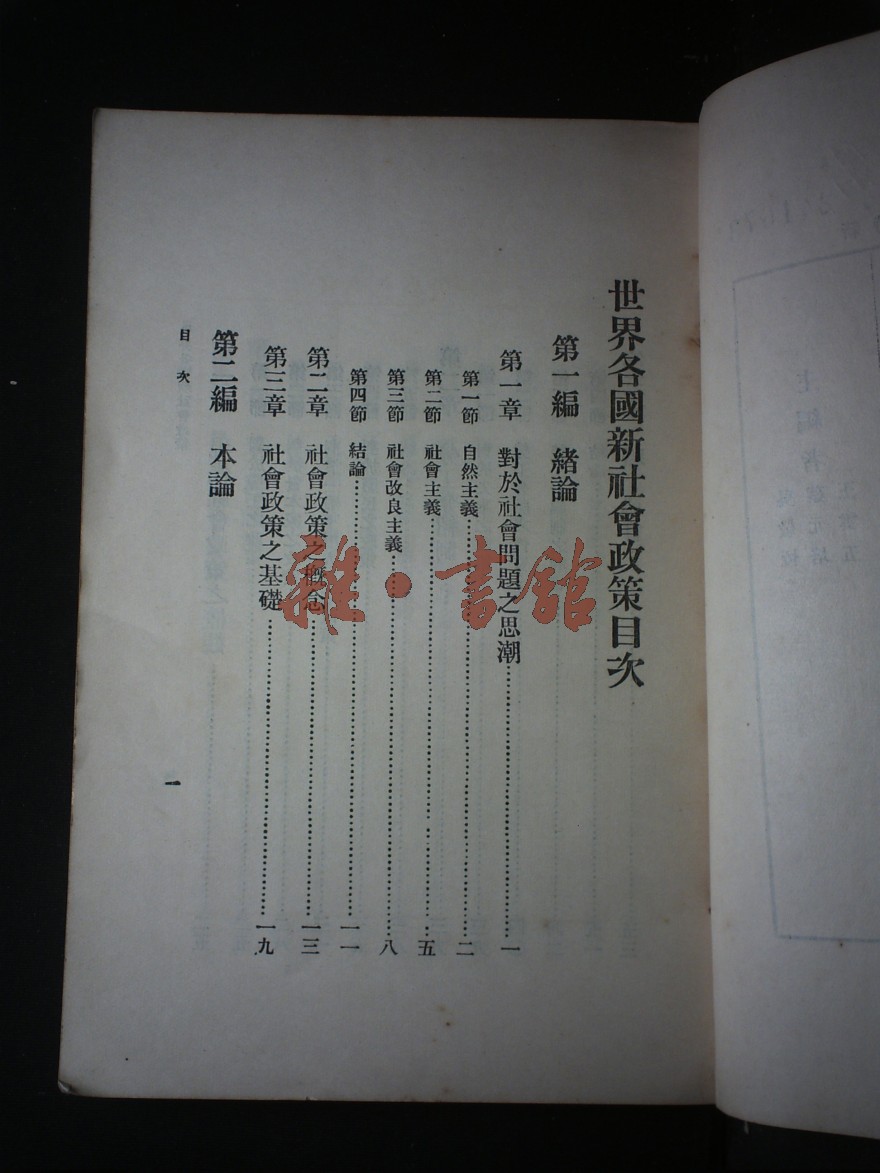 世界各國新社會政策目次
第一編　緒論
第一章　對於社會問題之思潮……一
第一節　自然主義……二
第二節　社會主義……五
第三節　社會改良主義……八
第四節　結論……一一
第二章　社會政策之概念……一三
第三章　社會政策之基礎……一九
第二編　本論
目次
一
雜·書館